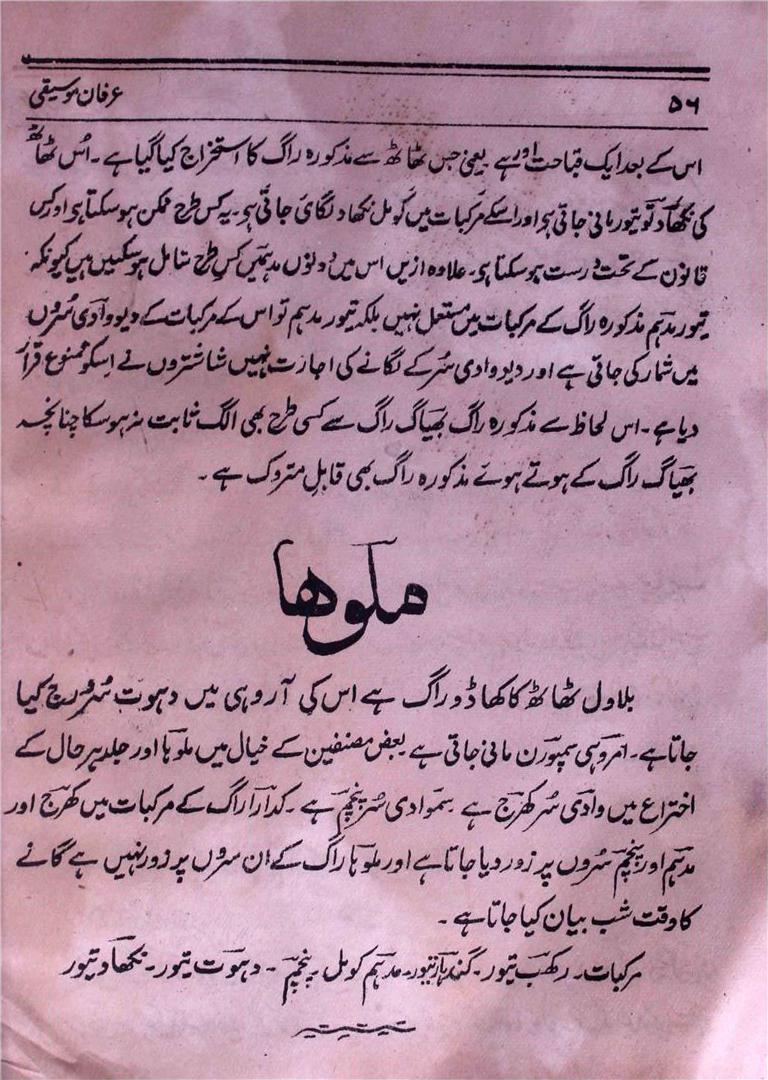 ۵۶
عرفان موسیقی
اس کے بعد ایک قباحت اور ہے یعنی جس ٹھاٹھ سے مذکورہ راگ کا استخراج کیا گیا ہے۔ اُس ٹھاٹھ
کی نکھاد تو تیور مانی جاتی ہی اور اسکے مرکبات میں کومل نکھاد لگائی جاتی ہی۔ یہ کس طرح ممکن ہو سکتا ہی اور کس
قانون کے تحت درست ہو سکتا ہی۔ علاوہ ازیں اس میں دونوں مدہمیں کس طرح شامل ہو سکیں ہیں کیونکہ
تیور مدہم مذکورہ راگ کے مرکبات میں مستعمل نہیں بلکہ تیور مدہم تو اس کے مرکبات کے دیو وادی سُروں
میں شمار کی جاتی ہے اور دیو وادی سُر کے لگانے کی اجازت نہیں شاشتروں نے اسکو ممنوع قرار
دیا ہے۔ اس لحاظ سے مذکورہ راگ بھیاگ راگ سے کسی طرح بھی الگ ثابت نہ ہو سکا چنانچہ
بھیاگ راگ کے ہوتے ہوئے مذکورہ راگ بھی قابلِ متروک ہے۔
ملوھا
بلاول ٹھاٹھ کا کھاڈو راگ ہے اس کی آروہی میں دہوت سُر ورج کیا
جاتا ہے۔ امروہی سمپورن مانی جاتی ہے بعض مصنفین کے خیال میں ملوہا اور جلد ہر حال کے
اختراع میں وادی سُر کھرج ہے سموادی سُر پنچم ہے۔ کدارا راگ کے مرکبات میں کھرج اور
مدہم اور پنچم سُروں پر زور دیا جاتا ہے اور ملوہا راگ کے ان سروں پر زور نہیں ہے گانے
کا وقت شب بیان کیا جاتا ہے۔
مرکبات۔ رکھب تیور۔ گندہار تیور۔ مدہم کومل۔ پنچم۔ دہوت تیور۔ نکھاد تیور